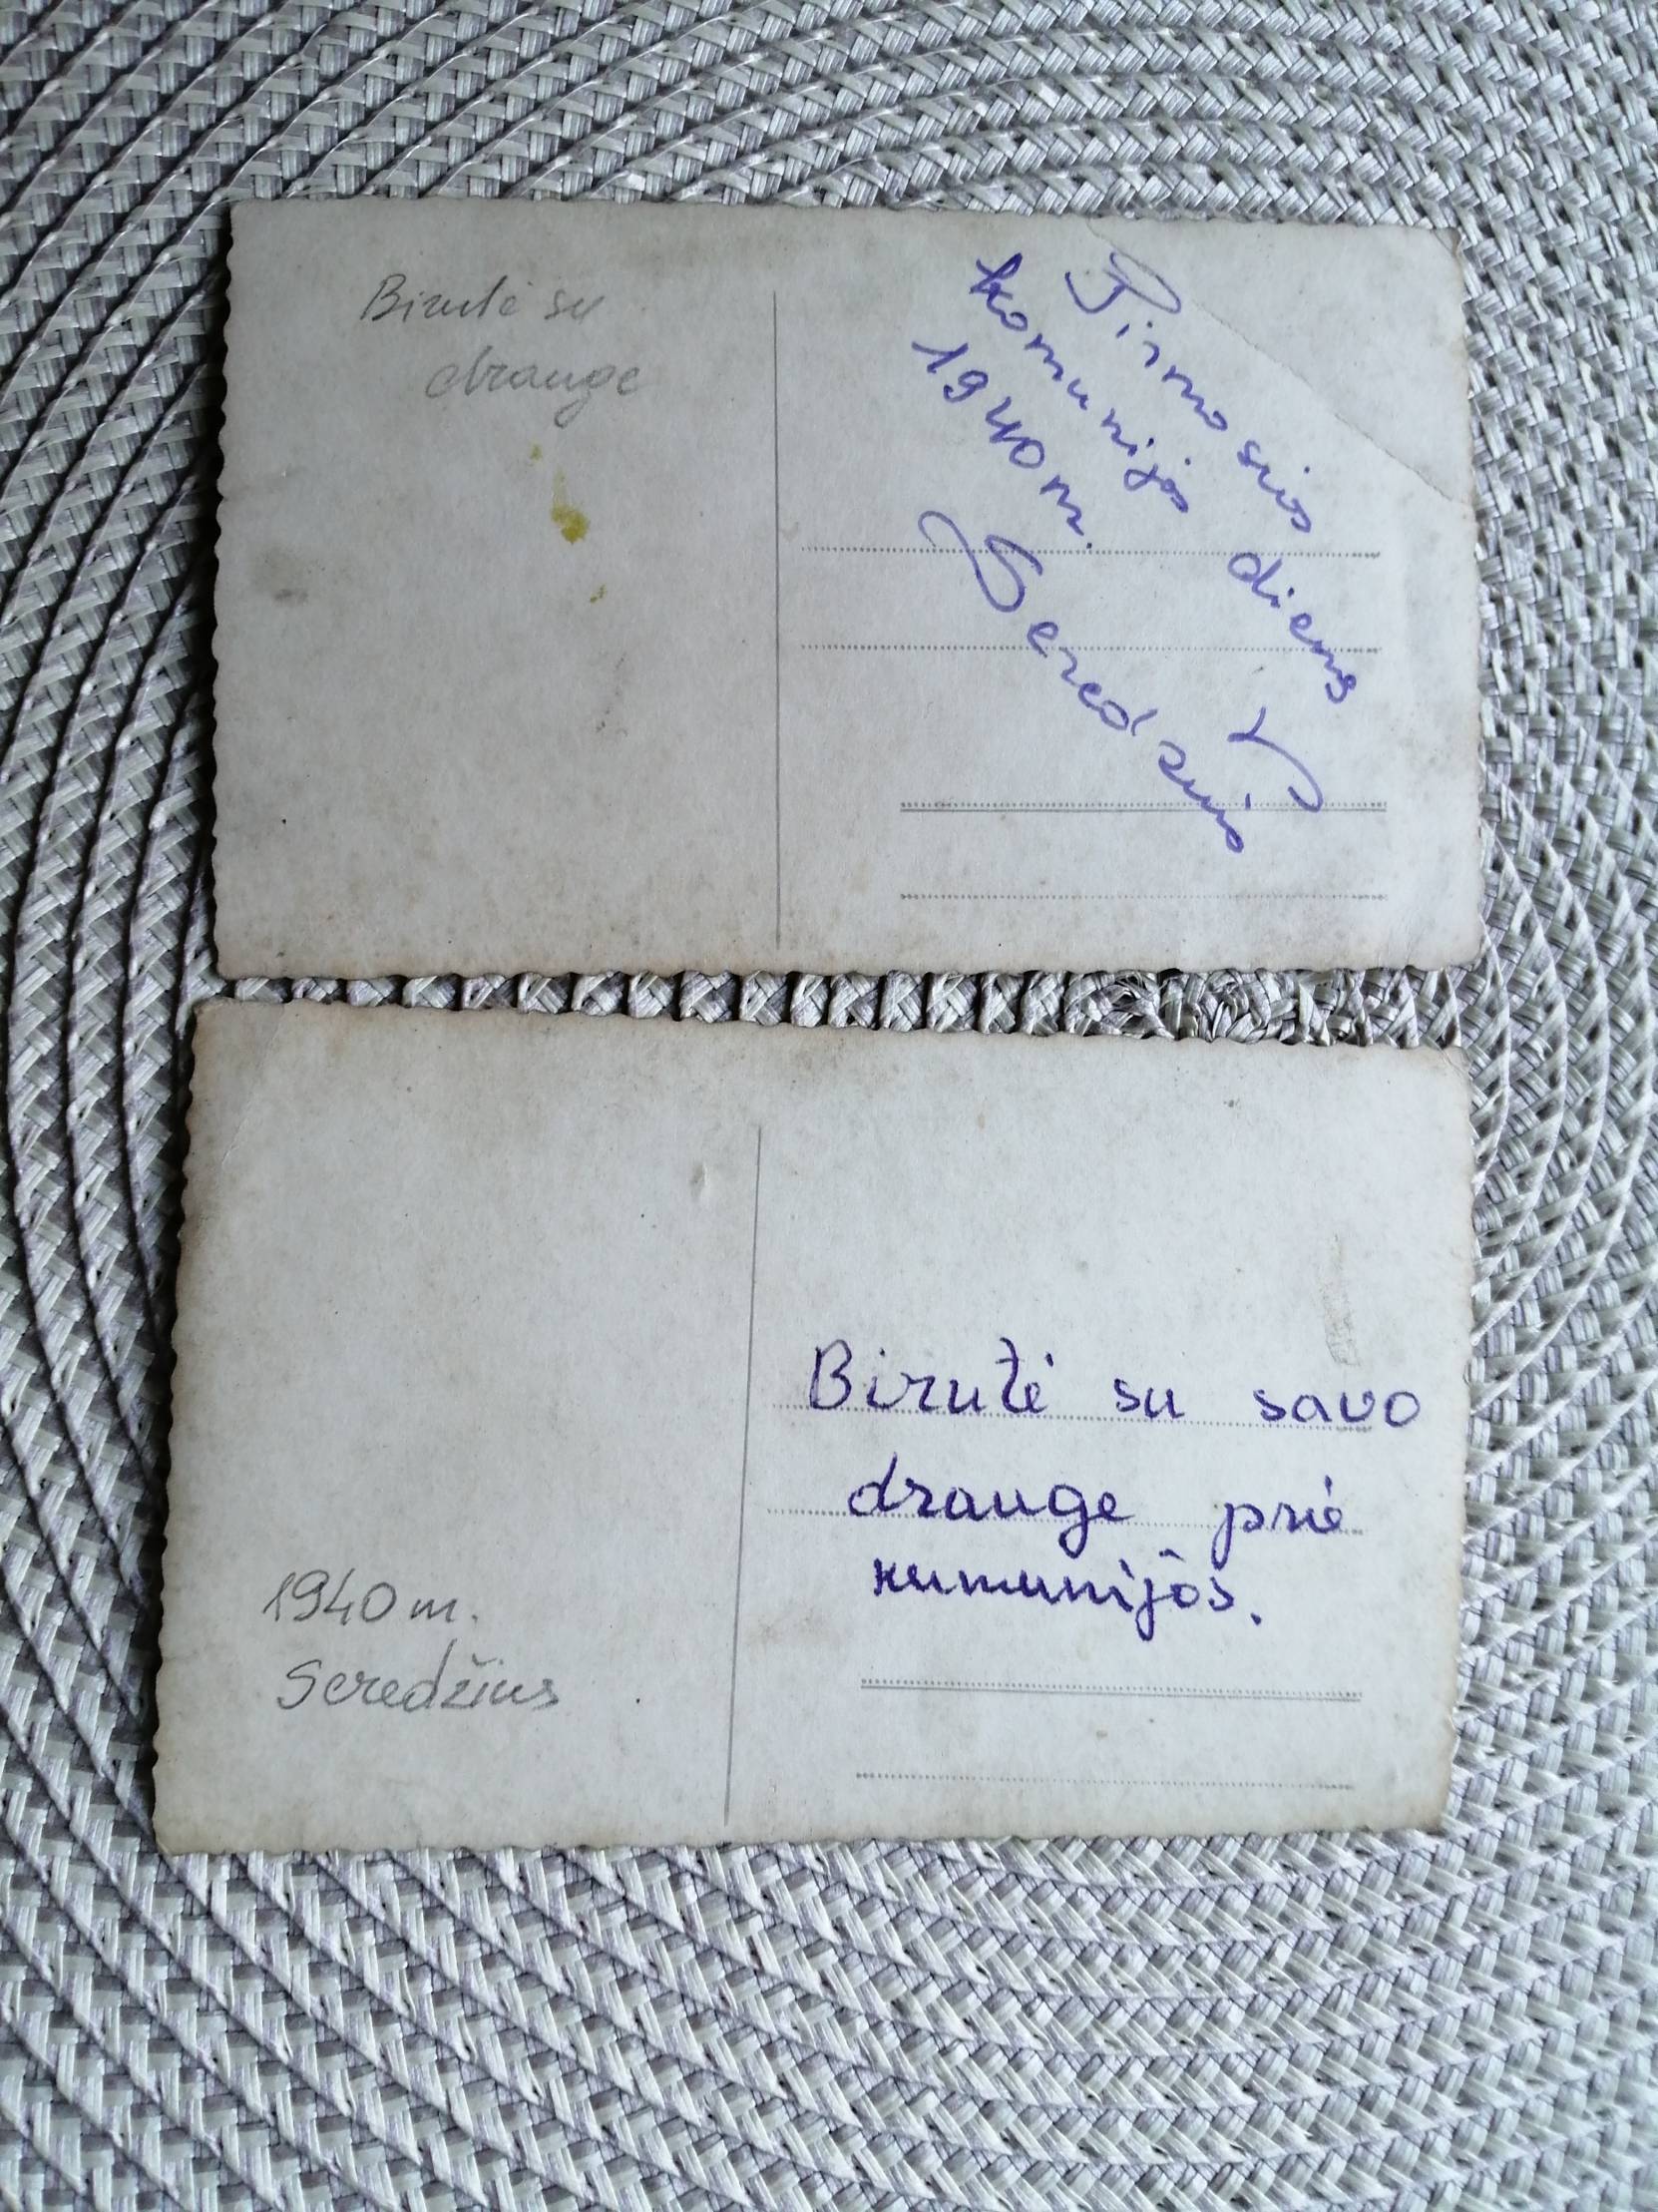 Birutė su
drauge
Pirmosios diena
komunijos
1940 m.
Seredžius
Birutė su savo
drauge priė
kumunijos.
1940 m.
Seredžius